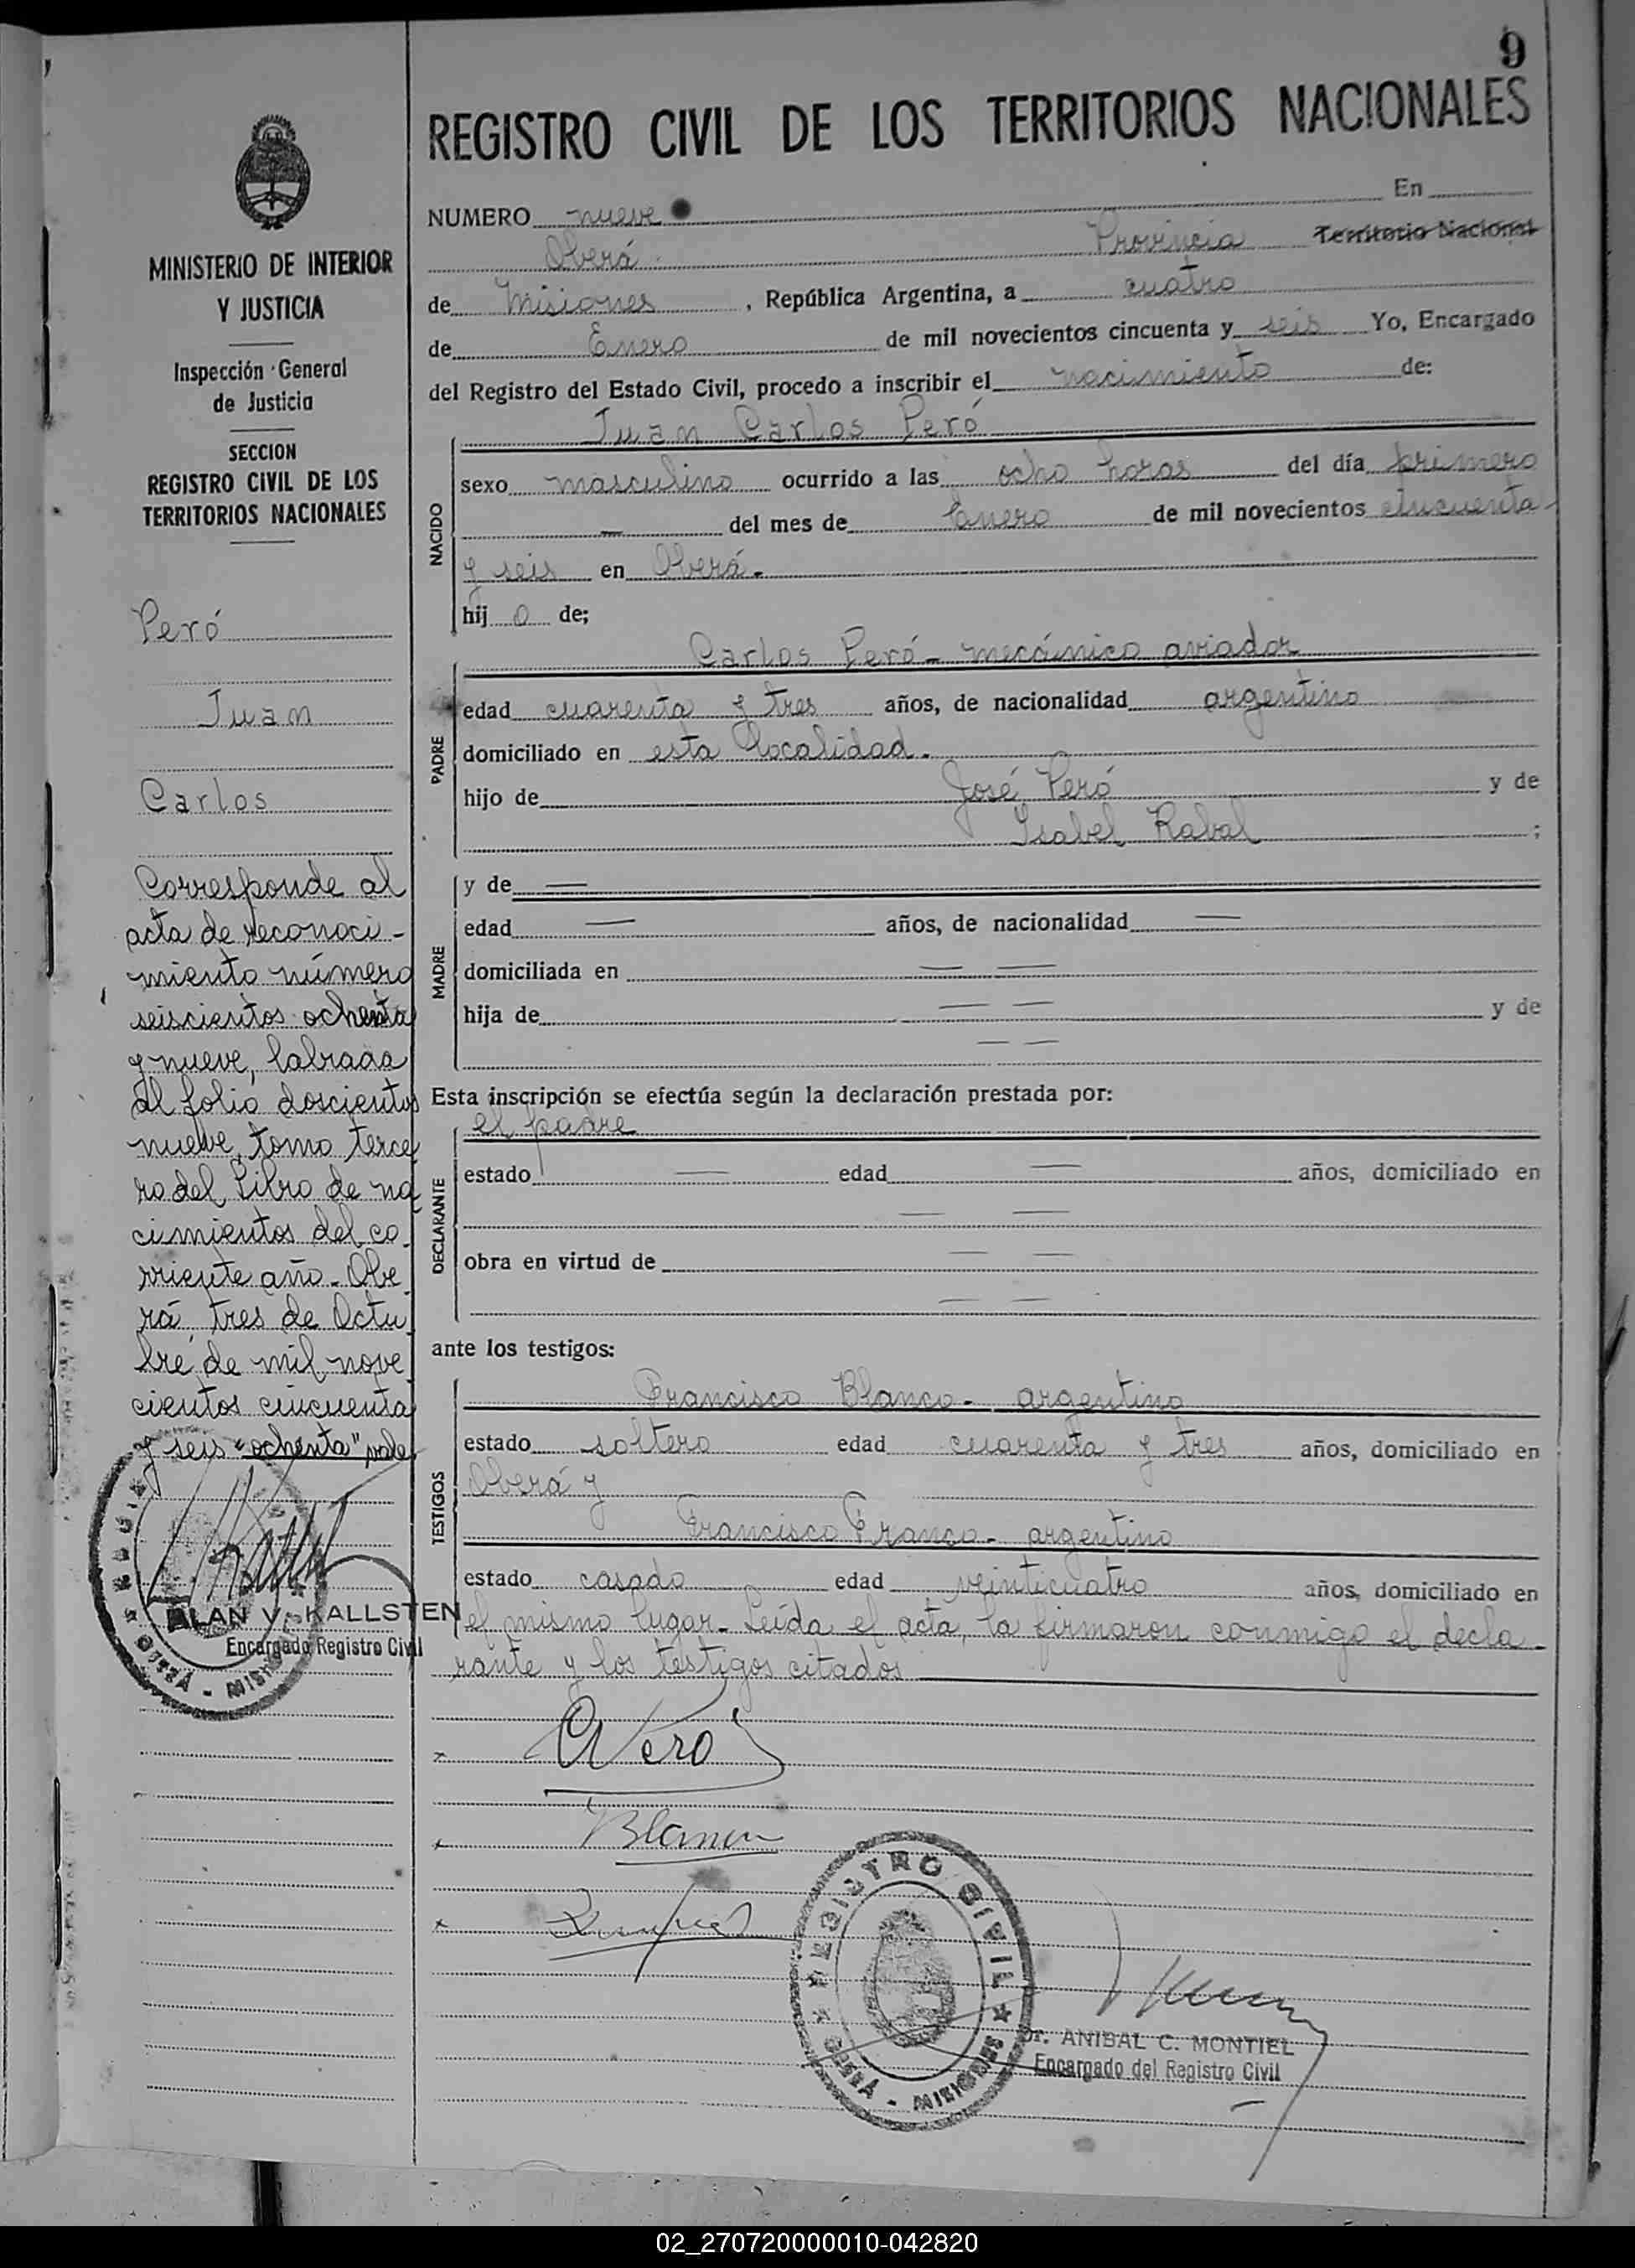 9
REGISTRO CIVIL DE LOS TERRITORIOS NACIONALES
MINISTERIO DE INTERIOR
Y JUSTICIA
Inspección General
de Justicia
SECCION
REGISTRO CIVIL DE LOS
TERRITORIOS NACIONALES
Peró
Juan
Carlos
Corresponde al
acta de reconoci-
miento número
seiscientos ochenta
y nueve, labrada
al folio doscientos
nueve, tomo terce
ro del Libro de na
cimientos del co
rriente año. Obe
rá, tres de Octu
bre de mil nove
cientos cincuenta
y seis "ochenta" vale
ALAN V. KALLSTEN
Encargado Registro Civil
OBERÁ - MIS
NUMERO nueve En
Oberá Provincia Territorio Nacional
de Misiones, República Argentina, a cuatro
de Enero de mil novecientos cincuenta y seis Yo, Encargado
del Registro del Estado Civil, procedo a inscribir el nacimiento de:
NACIDO
Juan Carlos Peró
sexo masculino ocurrido a las ocho horas del día primero
— del mes de Enero de mil novecientos cincuenta
y seis en Oberá.
hij o de;
PADRE
Carlos Peró - mecánico aviador
edad cuarenta y tres años, de nacionalidad argentino
domiciliado en esta localidad.
hijo de José Peró y de
Isabel Rabal ;
MADRE
y de —
edad — años, de nacionalidad —
domiciliada en — —
hija de — — y de
— —
Esta inscripción se efectúa según la declaración prestada por:
DECLARANTE
el padre
estado — edad — años, domiciliado en
— —
obra en virtud de — —
— —
ante los testigos:
TESTIGOS
Francisco Blanco - argentino
estado soltero edad cuarenta y tres años, domiciliado en
Oberá y
Francisco Franco - argentino
estado casado edad veinticuatro años, domiciliado en
el mismo lugar. Leída el acta, la firmaron conmigo el decla-
rante y los testigos citados
Peró
Blanco
REGISTRO CIVIL
OBERÁ - MISIONES
Dr. ANIBAL C. MONTIEL
Encargado del Registro Civil
02_270720000010-042820